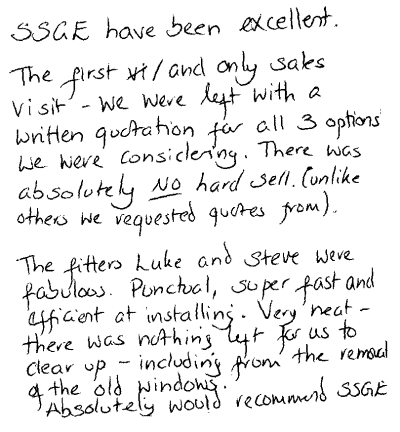 SSGE have been excellent.
The first vi/and only sales
visit - we were left with a
written quotation for all 3 options
we were considering. There was
absolutely NO hard sell. (unlike
others we requested quotes from).
The fitters Luke and Steve were
fabulous. Punctual, super fast and
efficient at installing. Very neat -
there was nothing left for us to
clear up - including from the removal
of the old windows.
Absolutely would recommend SSGE